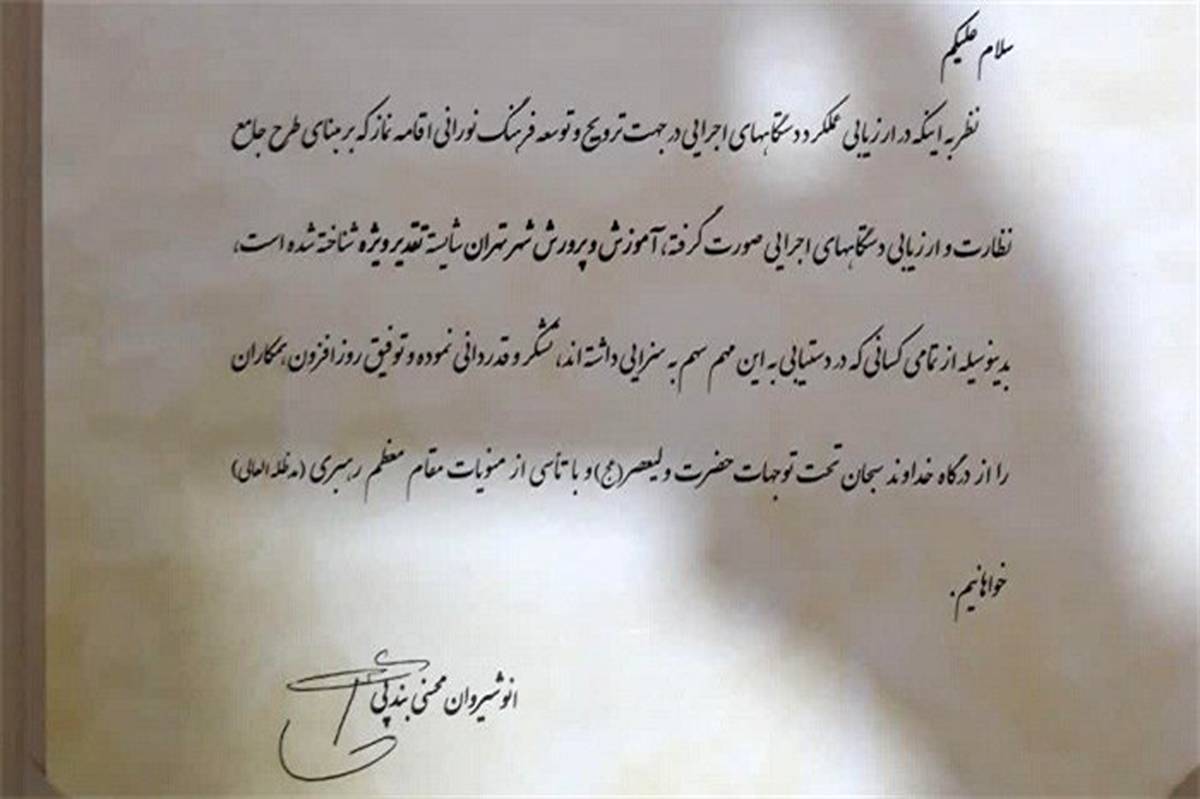 سلام علیکم
نظر به اینکه در ارزیابی عملکرد دستگاههای اجرایی در جهت ترویج و توسعه فرهنگ نورانی اقامه نماز که بر مبنای طرح جامع
نظارت و ارزیابی دستگاههای اجرایی صورت گرفته، آموزش و پرورش شهر تهران شایسته تقدیر ویژه شناخته شده است،
بدینوسیله از تمامی کسانی که در دستیابی به این مهم سهم به سزایی داشته اند، تشکر و قدردانی نموده و توفیق روز افزون همکاران
را از درگاه خداوند سبحان تحت توجهات حضرت ولیعصر(عج) و با تأسی از منویات مقام معظم رهبری (مدظله العالی)
خواهانیم.
انوشیروان محسنی بندپی